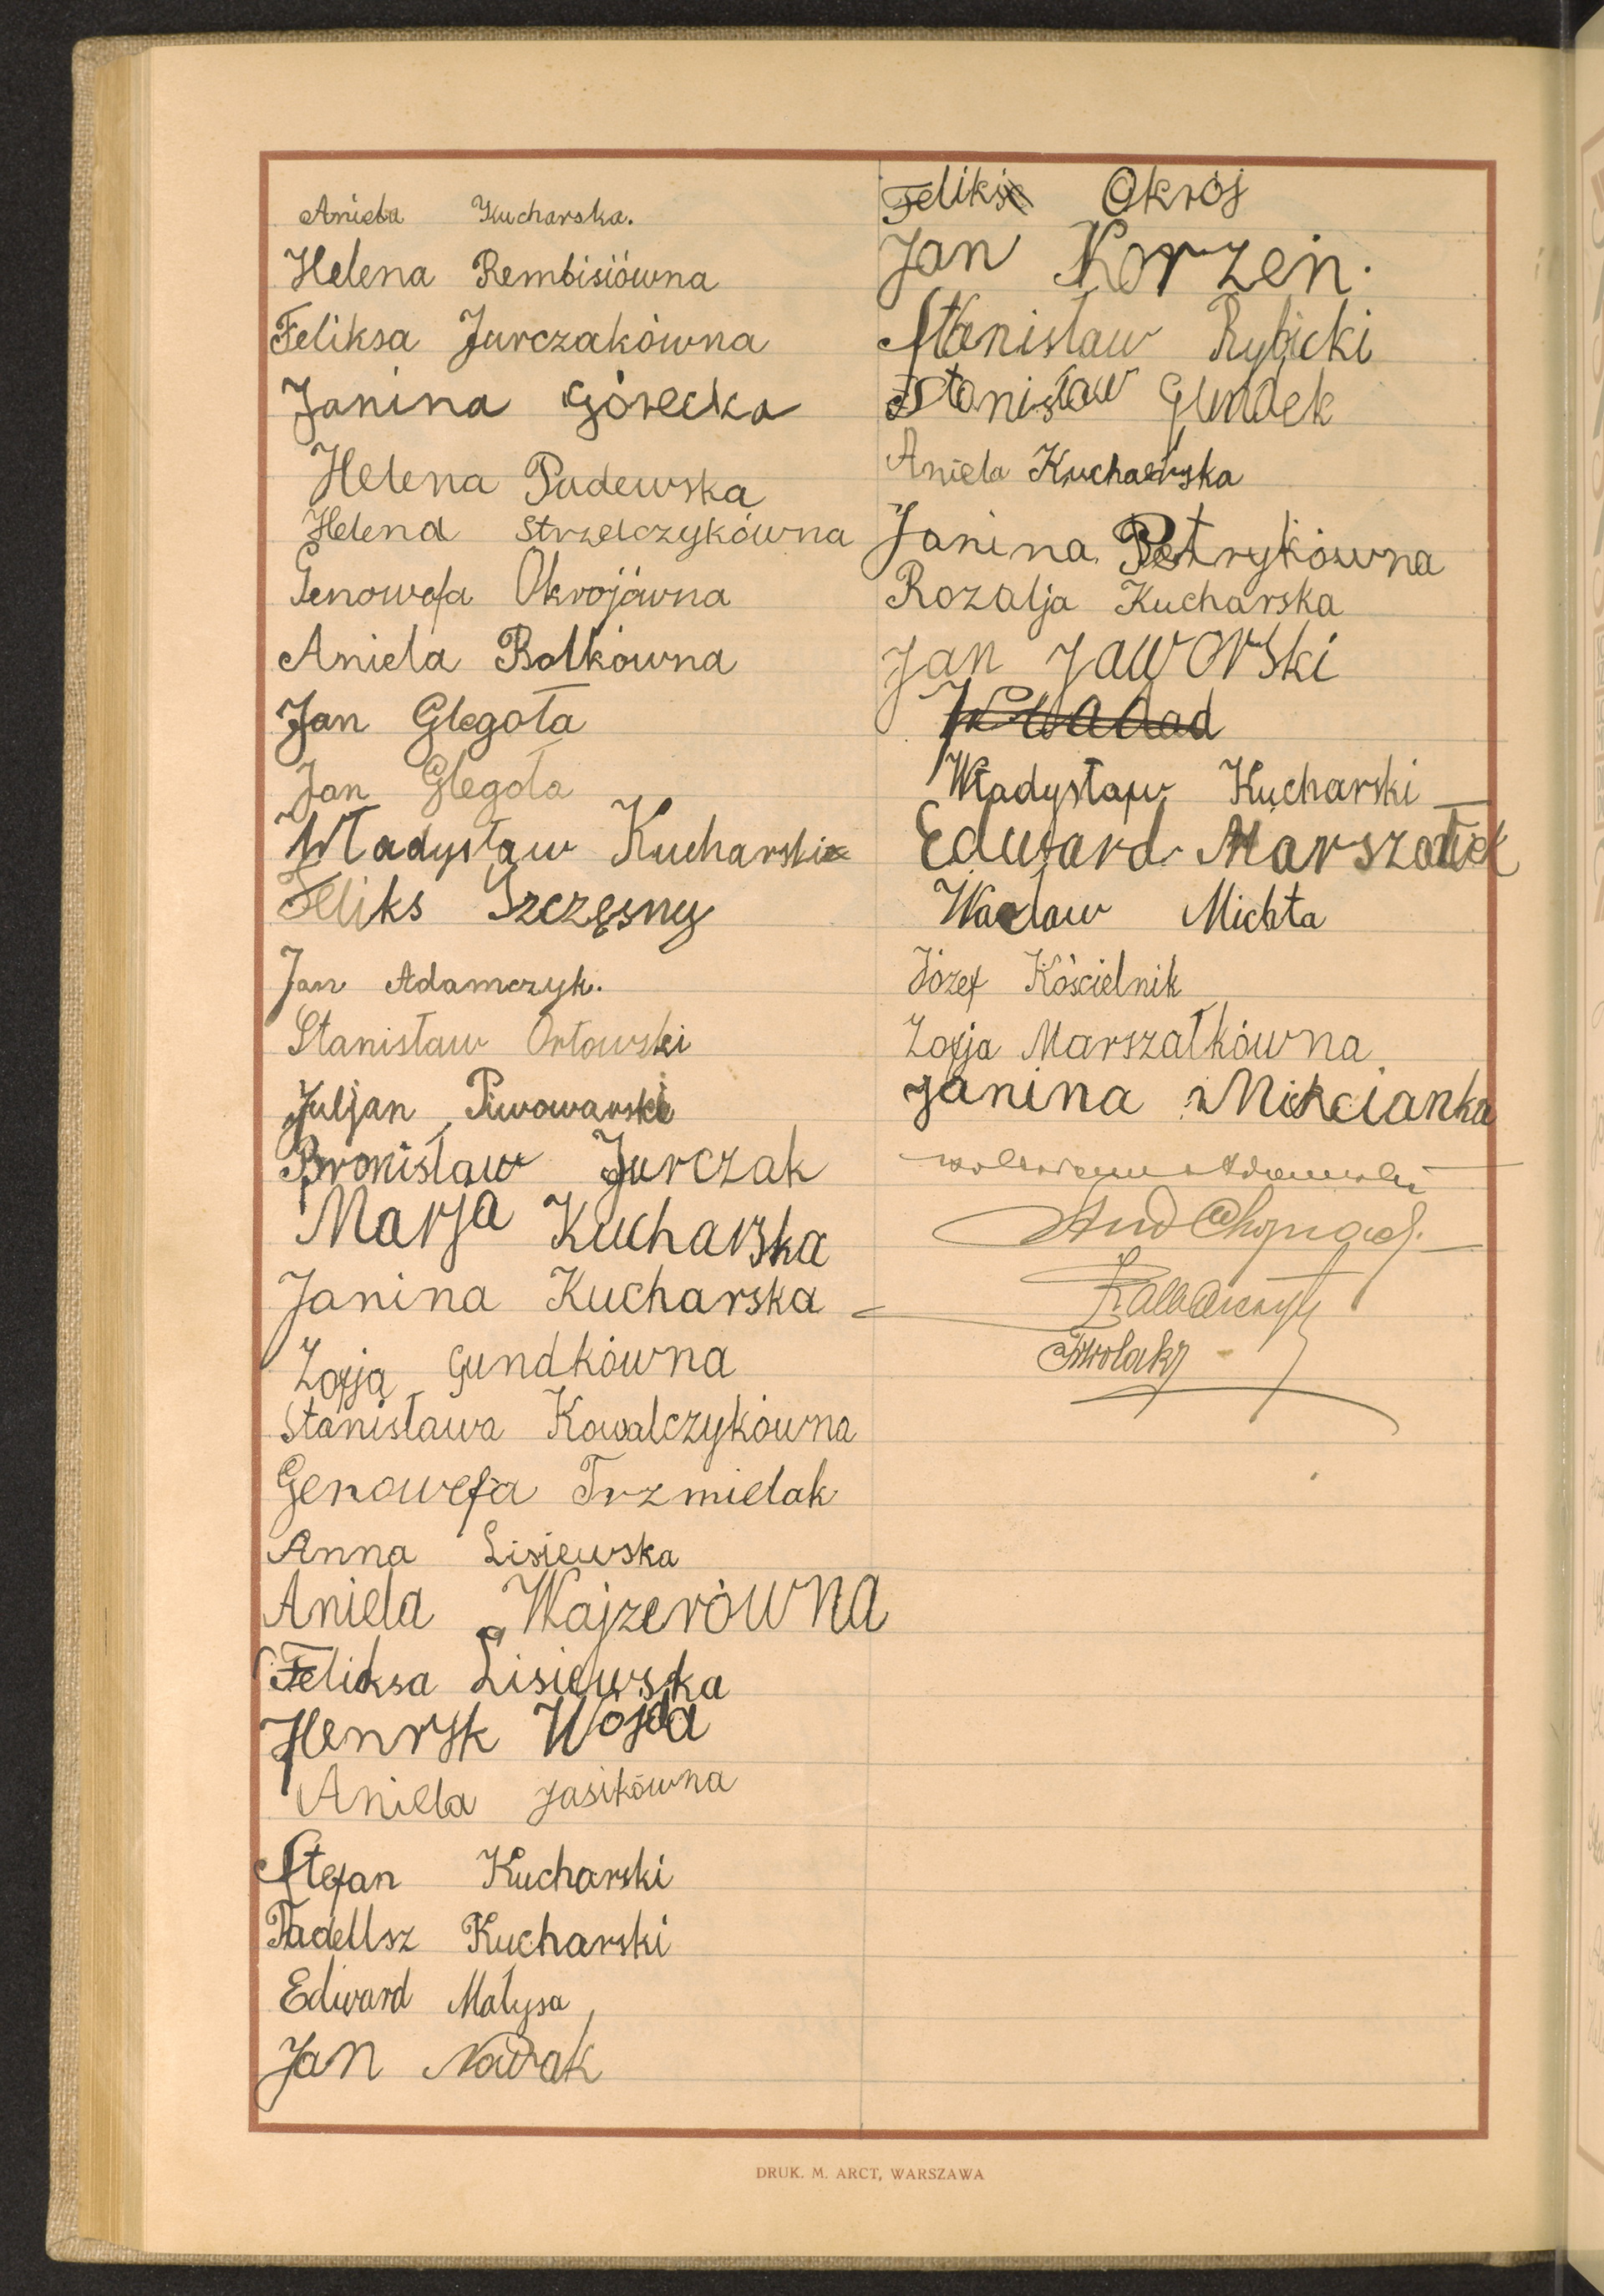 Aniela Kucharska.
Helena Rembisiówna
Feliksa Jurczakówna
Janina Górecka
Helena Padewska
Helena Strzelczykówna
Genowefa Okrojówna
Aniela Bolkówna
Jan Glegoła
Jan Glegoła
Władysław Kucharski
Feliks Szczęsny
Jan Adamczyk.
Stanisław Orłowski
Juljan Piwowarski
Bronisław Jurczak
Marja Kucharska
Janina Kucharska
Zofja Gundkówna
Stanisława Kowalczykówna
Genowefa Trzmielak
Anna Lisiewska
Aniela Wajzerówna
Feliksa Lisiewska
Henryk Wojda
Aniela Jasikówna
Stefan Kucharski
Tadeusz Kucharski
Edward Małysa
Jan Nowak
Feliks Okrój
Jan Korzeń.
Stanisław Rybicki
Stanisław Gundek
Aniela Kucharska
Janina Petrykówna
Rozalja Kucharska
Jan Jaworski
Władysław Kucharski
Edward Marszałek
Wacław Michta
Józef Kościelnik
Zofja Marszałkówna
Janina Mikcianka
DRUK. M. ARCT, WARSZAWA